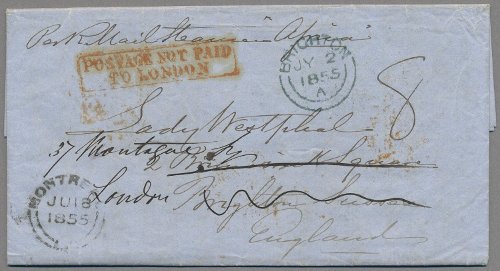 Per R. Mail Steamer "Africa"
POSTAGE NOT PAID
TO LONDON
BRIGHTON
JY 2
1855
A
8
Lady Westphal
37 Montague Sq
2 Brunswick Square
London Brighton Sussex
England
MONTRE
JU 18
1855